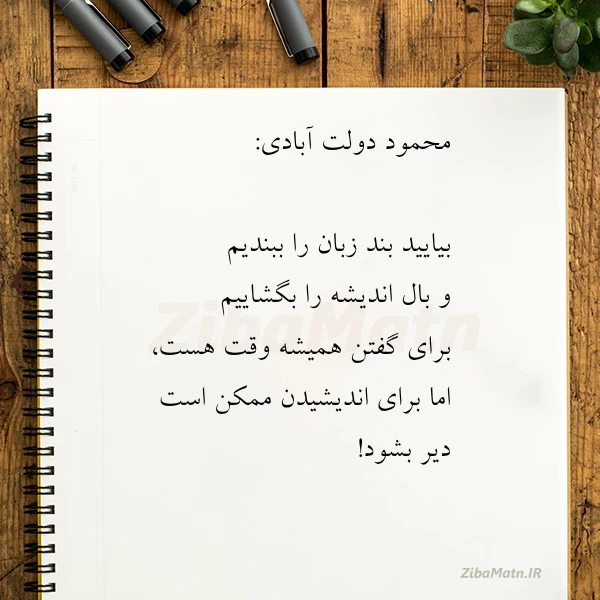 محمود دولت آبادی:
بیایید بند زبان را ببندیم
و بال اندیشه را بگشاییم
برای گفتن همیشه وقت هست،
اما برای اندیشیدن ممکن است
دیر بشود!
ZibaMatn
ZibaMatn.IR